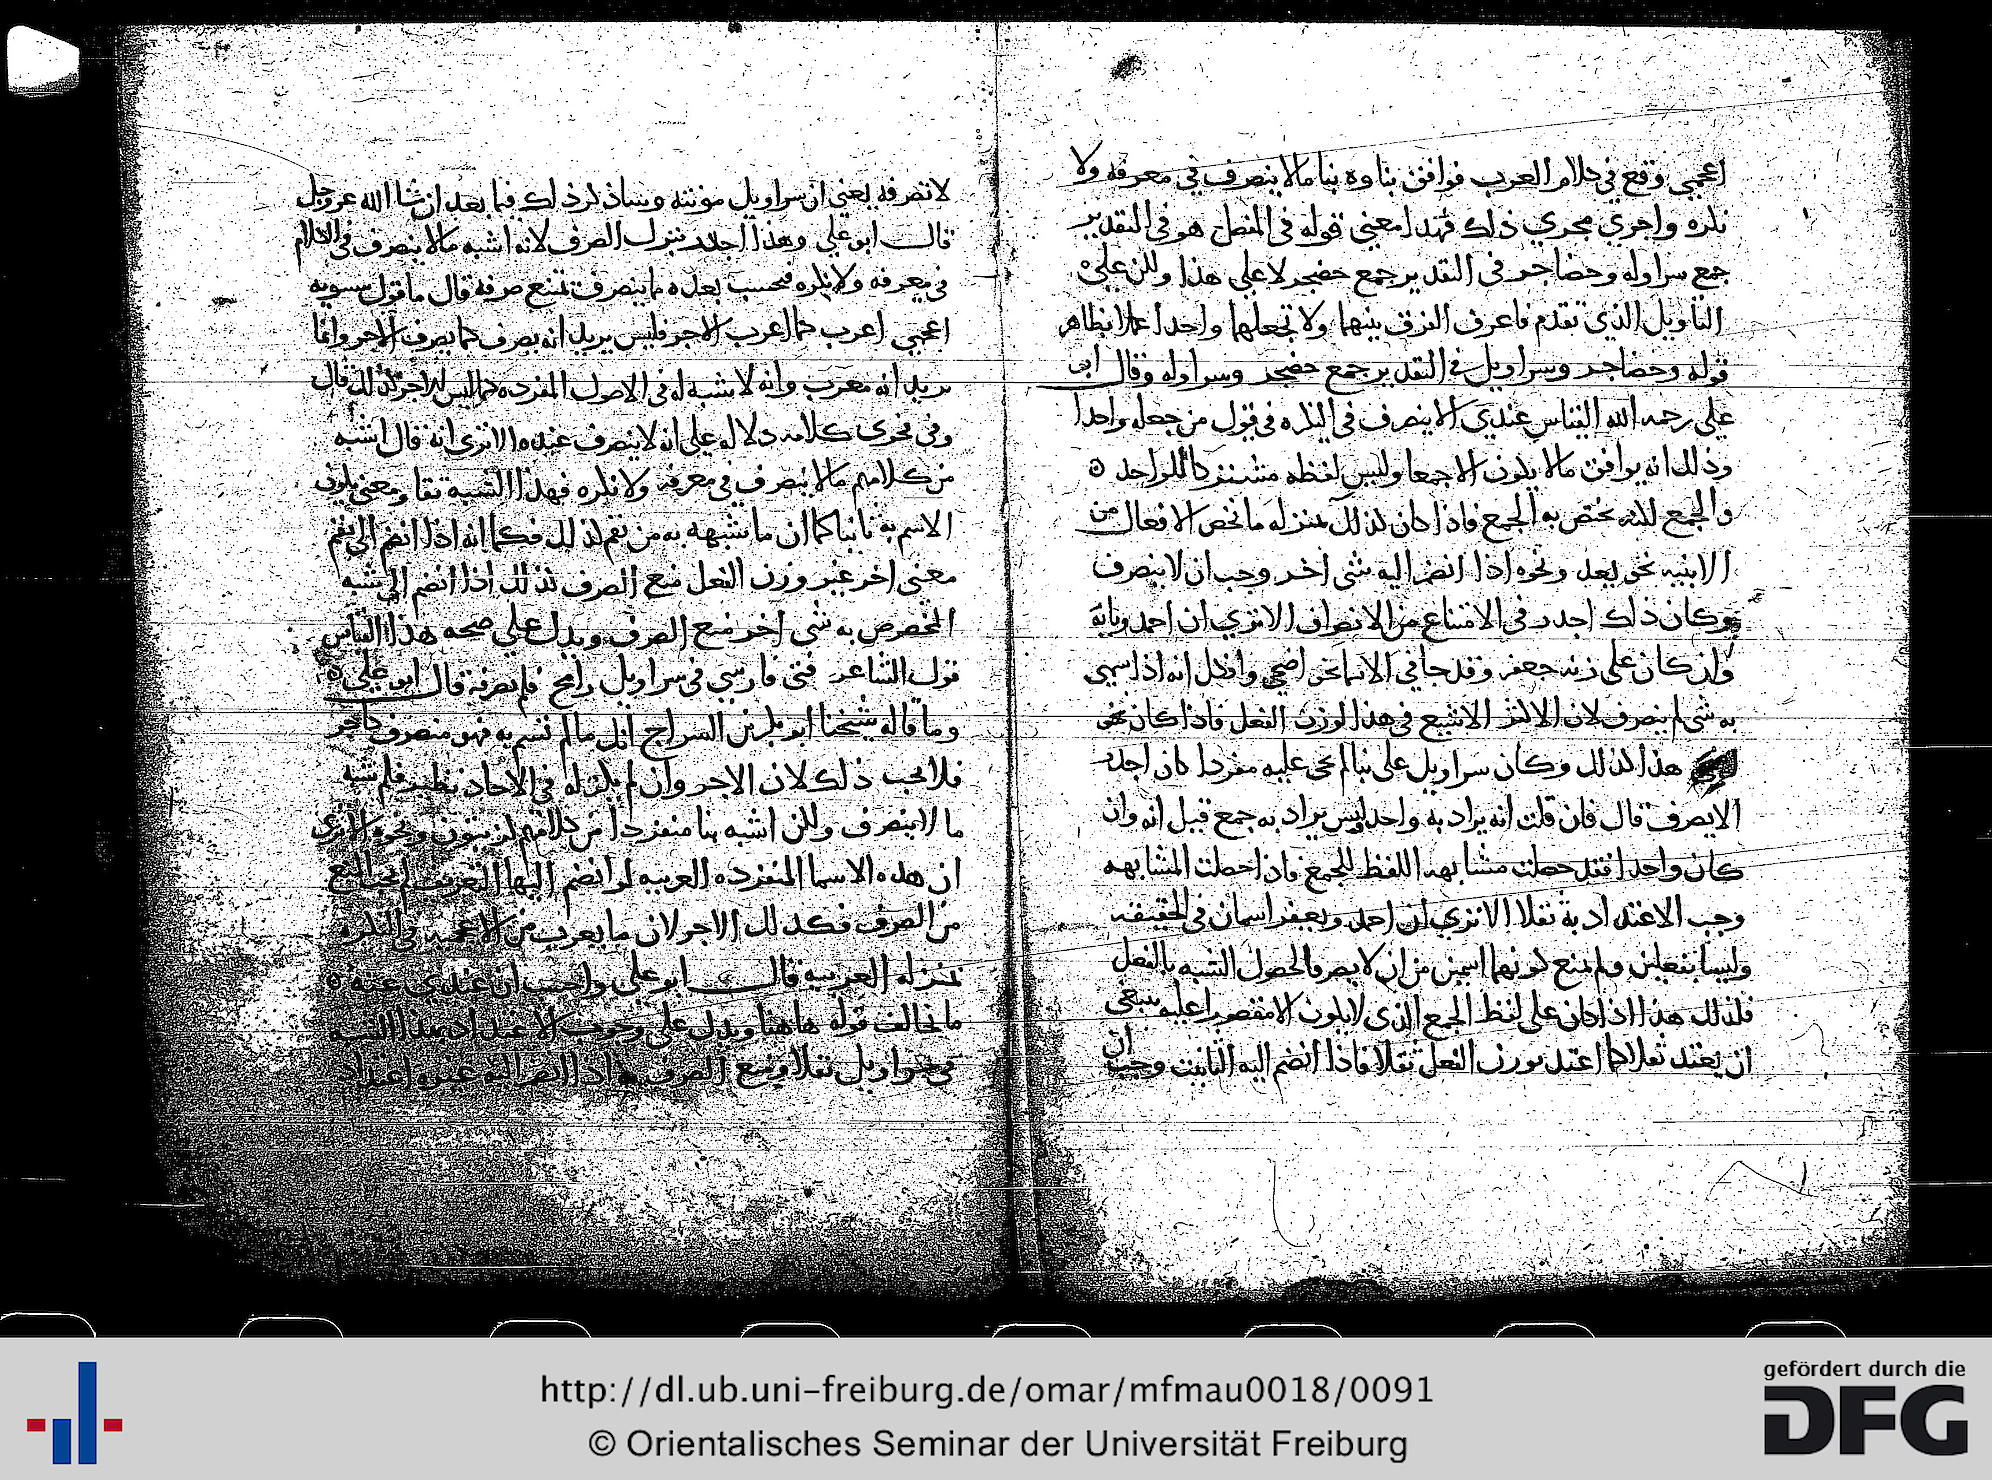 اعجمي وقع في كلام العرب فوافق بناوه بنا مالا ينصرف في معرفه ولا
نكره واجري مجري ذلك فهذا معني قوله في الفصل هو في التقدير
جمع سراوله وحضاجر في التقدير جمع حضجر لا علي هذا ولكن علي
التاويل الذي تقدم فاعرف الفرق بينهما ولا تجعلهما واحدا عملا بظاهر
قوله وحضاجر وسراويل في التقدير جمع حضجر وسراوله وقال ابي
علي رحمه الله القياس عندي الا ينصرف في النكره في قول من جعله واحدا
وذلك انه يوافق مالا يكون الا جمعا وليس لفظه مشتركا للواحد ه
والجمع لكنه يختص به الجمع فاذا كان كذلك بمنزله ما تخص الافعال من
الابنيه نحو يعد ونحوه اذا انضم اليه شي اخر وجب ان لا ينصرف
وكان ذلك اجدر في الامتناع من الانصراف الا تري ان احمد وبابه
وان كان علي زنه جعفر وقد جا في الاسما نحو اضحي وافكل انه اذا سمي
به شي لم ينصرف لان الاكثر الاشيع في هذا الوزن الفعل فاذا كان نحو
هذا كذلك وكان سراويل علي بنا لم يجي عليه مفردا كان اجدر
الا يصرف قال فان قلت انه يراد به واحد وليس يراد به جمع قيل انه وان
كان واحدا فقد حصلت مشابهه اللفظ للجمع فاذا حصلت المشابهه
وجب الاعتداد به ثقلا الا تري ان احمد ويعفر اسمان في الحقيقه
وليسا بفعلين ولم يمنع كونهما اسمين من ان لا يصرفا لحصول الشبه بالفعل
فلذلك هذا اذا كان علي لفظ الجمع الذي لا يكون الا مقتصرا عليه ينبغي
ان يعتد ثقلا كما اعتد بوزن الفعل ثقلا فاذا انضم اليه التانيث وجب ان
لا تصرفه يعني ان سراويل مونثه وسنذكر ذلك فيما بعد ان شا الله عز وجل
قال ابو علي وهذا اجدر بترك الصرف لانه اشبه مالا ينصرف في الكلام
في معرفه ولا نكره فحسب بعده ما ينصرف تمنع صرفه قال ما قول سيبويه
اعجمي اعرب كما اعرب الاجر فليس يريد انه يصرف كما يصرف الاجر وانما
يريد انه معرب وانه لا شبه له في الاصول المفرده كما ليس للاجر كذلك قال
وفي فحوي كلامه دلاله علي انه لا ينصرف عنده الا تري انه قال اشبه
من كلامهم مالا ينصرف في معرفه ولا نكره فهذا الشبه ثقل ومعني يكون
الاسم به ثانيا كما ان ما تشبهه به من نعم كذلك فكما انه اذا انضم الي نعم
معني اخر غير وزن الفعل منع الصرف كذلك اذا انضم الي شبه
المخصوص به شي اخر منع الصرف ويدل علي صحه هذا القياس
قول الشاعر فتي فارسي في سراويل رامح فلم يصرفه قال ابو علي ه
وما قاله شيخنا ابو بكر بن السراج ان كل مالم نسم به فهو منصرف كاجر
فلا يجب ذلك لان الاجر وان لم يكن له في الاحاد نظير فلم يشبه
ما لا ينصرف ولكن اشبه بنا منفردا من كلامهم كزيتون ونحوه الا تري
ان هذه الاسما المنفرده العربيه لو انضم اليها التعريف لم يجب المنع
من الصرف فكذلك الاجر لان ما يعرب من الاعجميه في النكره
بمنزله العربيه قال ابو علي واحسب ان عندي عنه ه
ما يخالف قوله هاهنا ويدل علي وجوب الاعتداد بهذا الشبه
في سراويل ثقلا ومنع الصرف به اذا انضم اليه غيره اعتداد
http://dl.ub.uni-freiburg.de/omar/mfmau0018/0091
© Orientalisches Seminar der Universität Freiburg
gefördert durch die
DFG